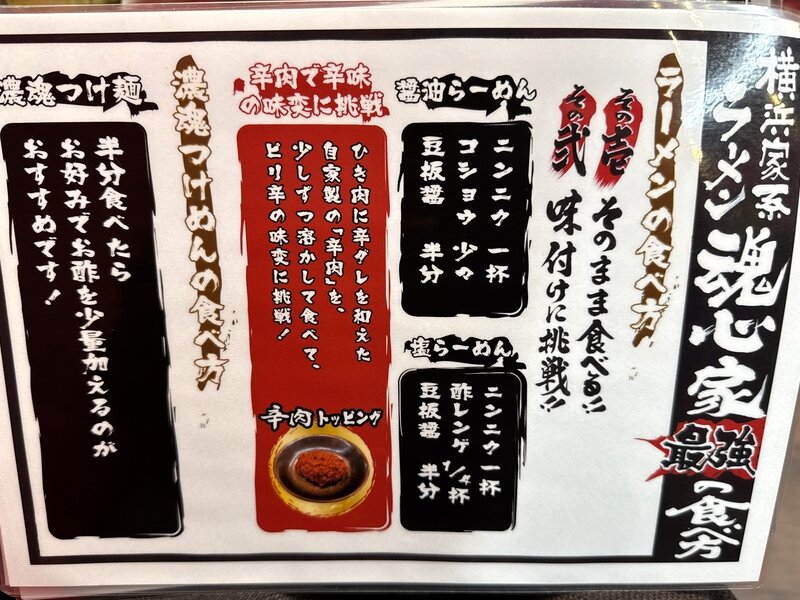 横浜家系
ラーメン 魂心家 最強の食べ方
ラーメンの食べ方
その壱 そのまま食べる!!
その弐 味付けに挑戦!!
醤油らーめん
ニンニク 一杯
コショウ 少々
豆板醤 半分
塩らーめん
ニンニク 一杯
酢レンゲ 1/4杯
豆板醤 半分
辛肉で辛味
の味変に挑戦
ひき肉に辛ダレを和えた
自家製の「辛肉」を、
少しずつ溶かして食べて、
ピリ辛の味変に挑戦!
辛肉トッピング
濃魂つけめんの食べ方
濃魂つけ麺
半分食べたら
お好みでお酢を少量加えるのが
おすすめです!